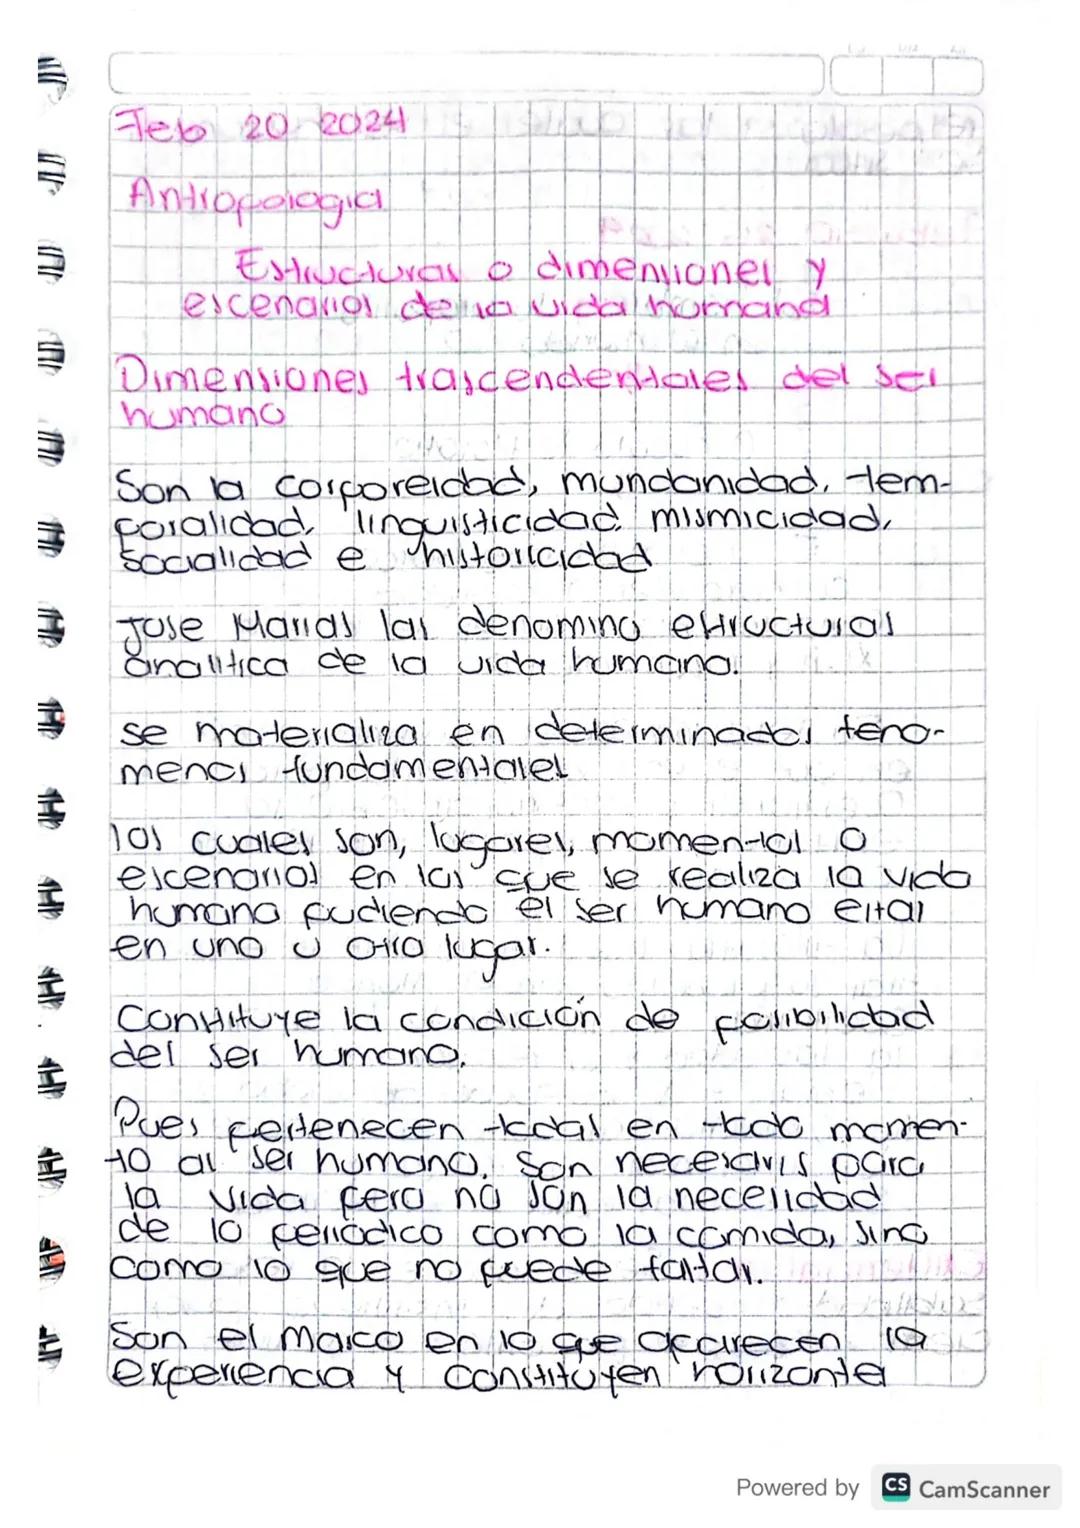 Feb 20 2024
Antropologia
Estructuras o dimensiones y
escenarios de la vida humana
Dimensiones trascendentales del ser
humano
Son la corporeidad, mundanidad, tem-
poralidad, linguisticidad, mismicidad,
socialidad e historicidad
Jose Marias las denomino estructuras
analitica de la vida humana.
se materializa en determinados feno-
menos fundamentales
los cuales son, lugares, momentos o
escenarios en los que se realiza la vida
humana pudiendo el ser humano estar
en uno u otro lugar.
Constituye la condición de posibilidad
del ser humano.
Pues pertenecen todas en todo momen-
to al ser humano. Son necesarias para
la vida pero no son la necesidad
de lo periódico como la comida, sino
como lo que no puede faltar.
Son el marco en lo que aparecen la
experiencia y constituyen horizontes
Powered by CS CamScanner